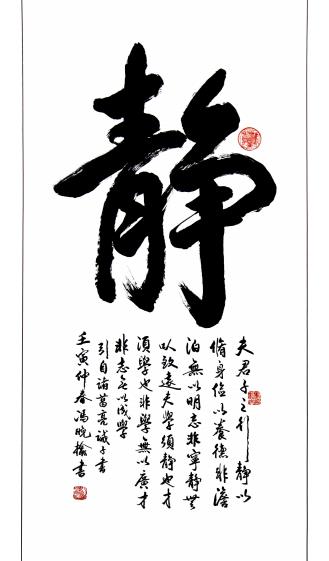 静
夫君子之行静以
脩身俭以養德非澹
泊無以明志非寧静無
以致遠夫學須静也才
須學也非學無以廣才
非志無以成學
引自诸葛亮诫子書
壬寅仲春冯書